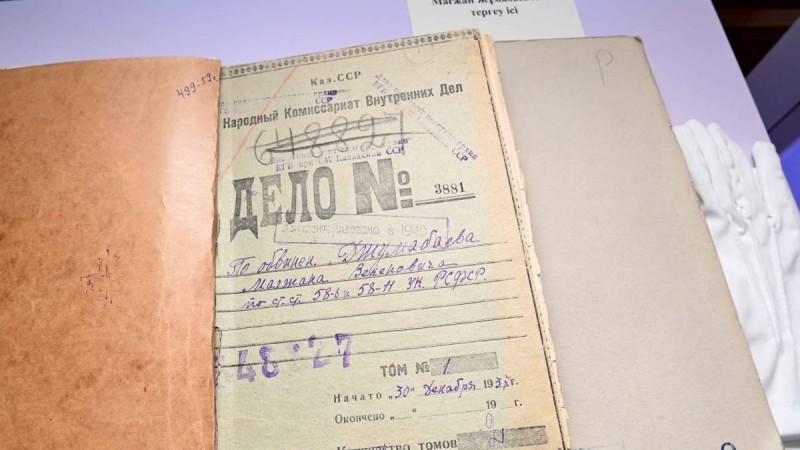 тергеу ісі
499-59
Р
Каз.ССР
Народный Комиссариат Внутренних Дел
648827
КГБ при СМ Казахской ССР
ДЕЛО № 3881
в 1940
По обвинен. Джумабаева
Магжана Бекеновича
по ст.ст. 58-6 и 58-11 УК. РСФСР.
48 27
ТОМ № 1
Начато „30" Декабря 1937г.
Окончено „ " 19 г.
Количество томов 2